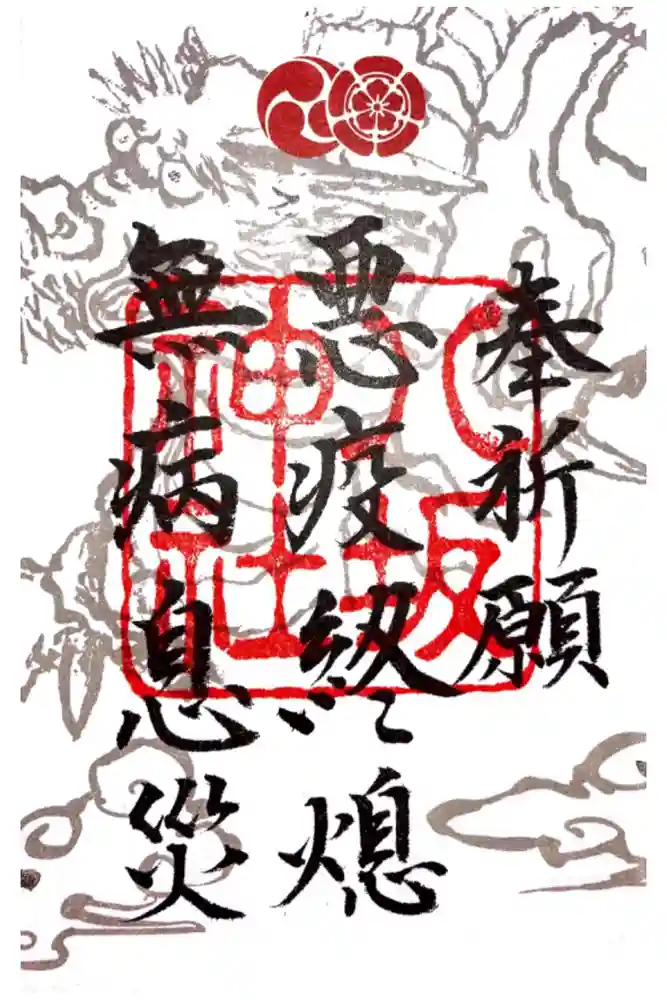 奉祈願
悪疫終熄
無病息災
八坂神社